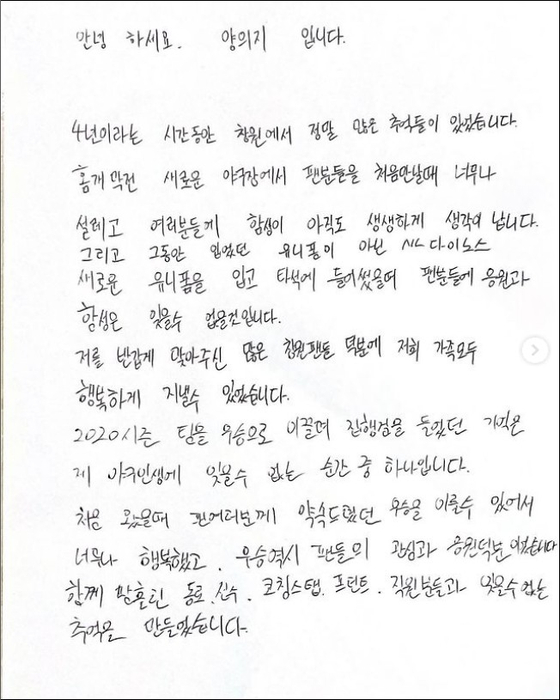 안녕 하세요. 양의지 입니다.
4년이라는 시간동안 창원에서 정말 많은 추억들이 있었습니다.
홈개막전 새로운 야구장에서 팬분들을 처음만날때 너무나
설레고 여러분들게 함성이 아직도 생생하게 생각이 납니다.
그리고 그동안 입었던 유니폼이 아닌 NC 다이노스
새로운 유니폼을 입고 타석에 들어섰을때 팬분들에 응원과
함성은 잊을수 없을것입니다.
저를 반갑게 맞아주신 많은 창원팬분 덕분에 저희 가족모두
행복하게 지낼수 있었습니다.
2020시즌 팀을 우승으로 이끌며 집행검을 들었던 기억은
제 야구인생에 잊을수 없는 순간 중 하나입니다.
처음 왔을때 팬여러분께 약속드렸던 우승을 이룰수 있어서
너무나 행복했고, 우승역시 팬들의 관심과 응원덕분이었습니다
함께 땀흘린 동료, 선수, 코칭스탭, 프런트, 직원분들과 잊을수없는
추억을 만들었습니다.